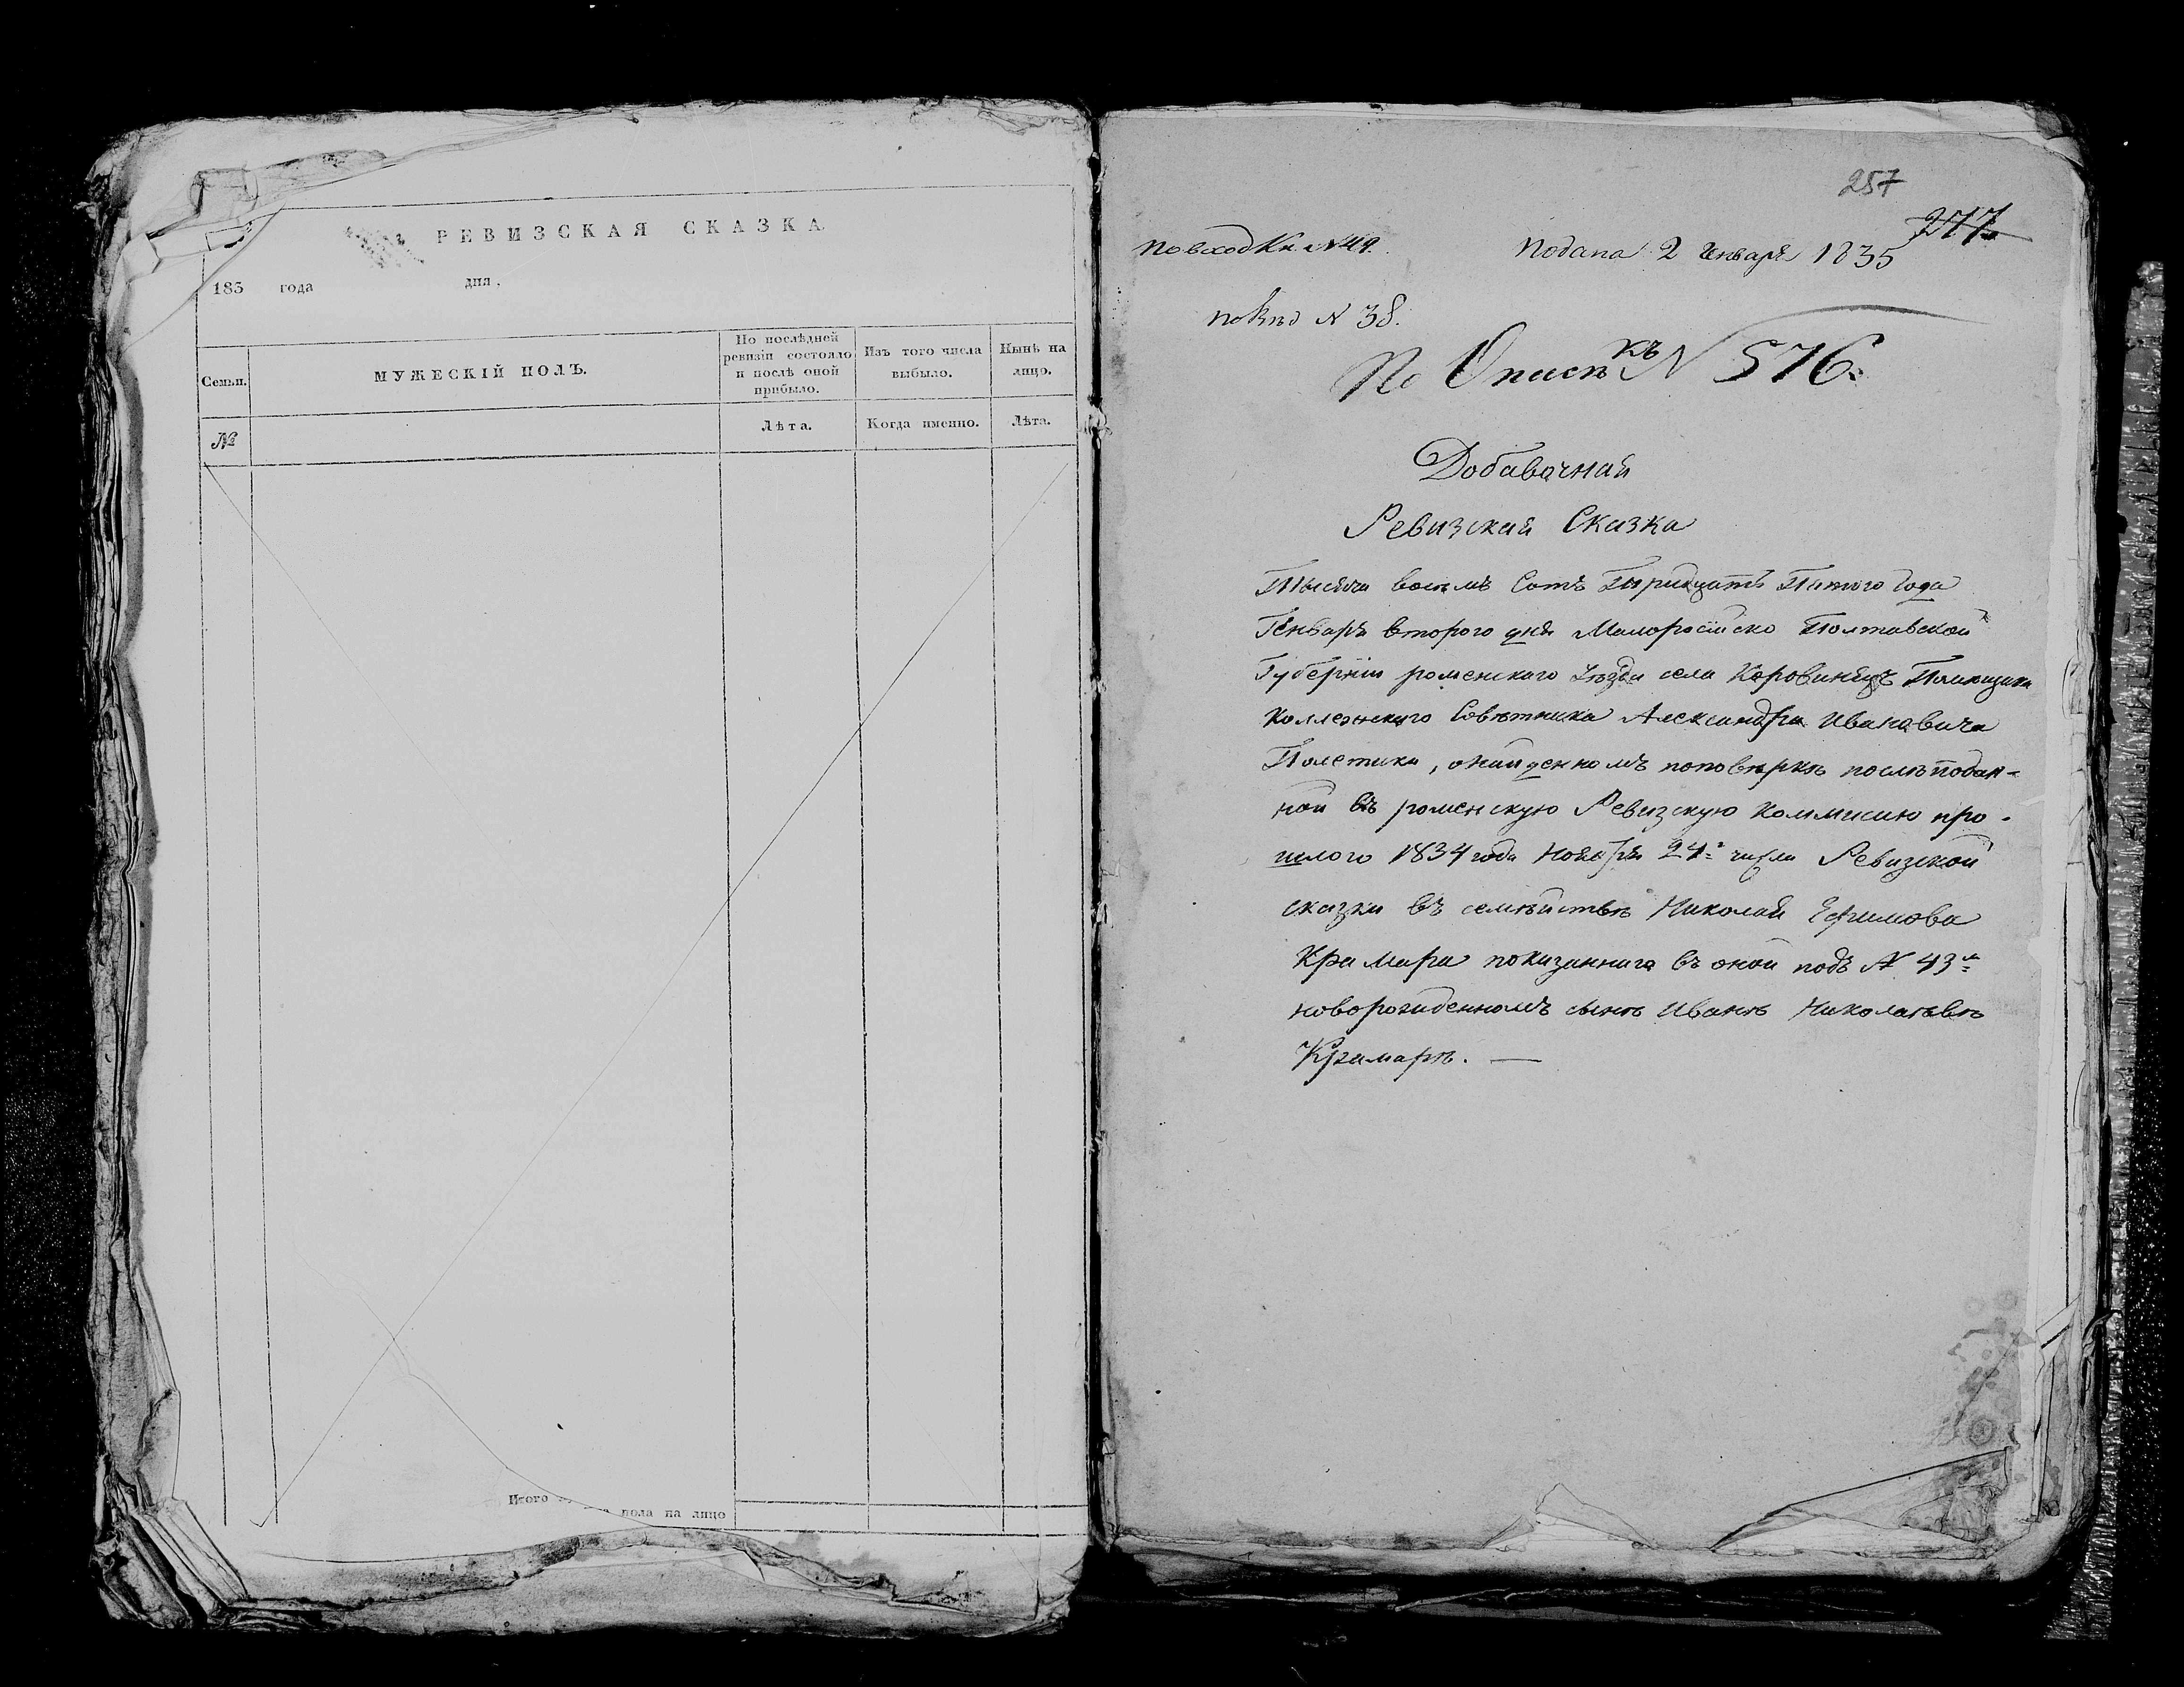 РЕВИЗСКАЯ СКАЗКА
183 года дня.
Семьи.
МУЖЕСКІЙ ПОЛЪ.
По послѣдней
ревизіи состояло
и послѣ оной
прибыло.
Изъ того числа
выбыло.
Нынѣ на
лицо.
№
Лѣта.
Когда именно.
Лѣта.
Итого пола на лицо
257
277
По входкн N 49.
Подана 2 Генваря 1835
N 38.
По Описѣ къ N 576.
Добавочная
Ревизская Сказка
Тысяча восемъ Сотъ Тридцать Пятого Года
Генваря второго дня Малоросійско Полтавской
Губерніи роменскаго Уѣзда села Коровинецъ Помѣщика
Коллежскаго Совѣтника Александра Ивановича
Полетики, онайденномъ поповѣркѣ послѣ подан-
ной въ роменскую Ревизскую Коммисию про-
шлого 1834 года Ноября 24г числа Ревизской
сказки въ семѣйствѣ Николая Ефимова
Крамара показаннаго въ оной подъ N 43м
новорожденномъ сынѣ Иванѣ Николаѣвѣ
Крамарѣ. —